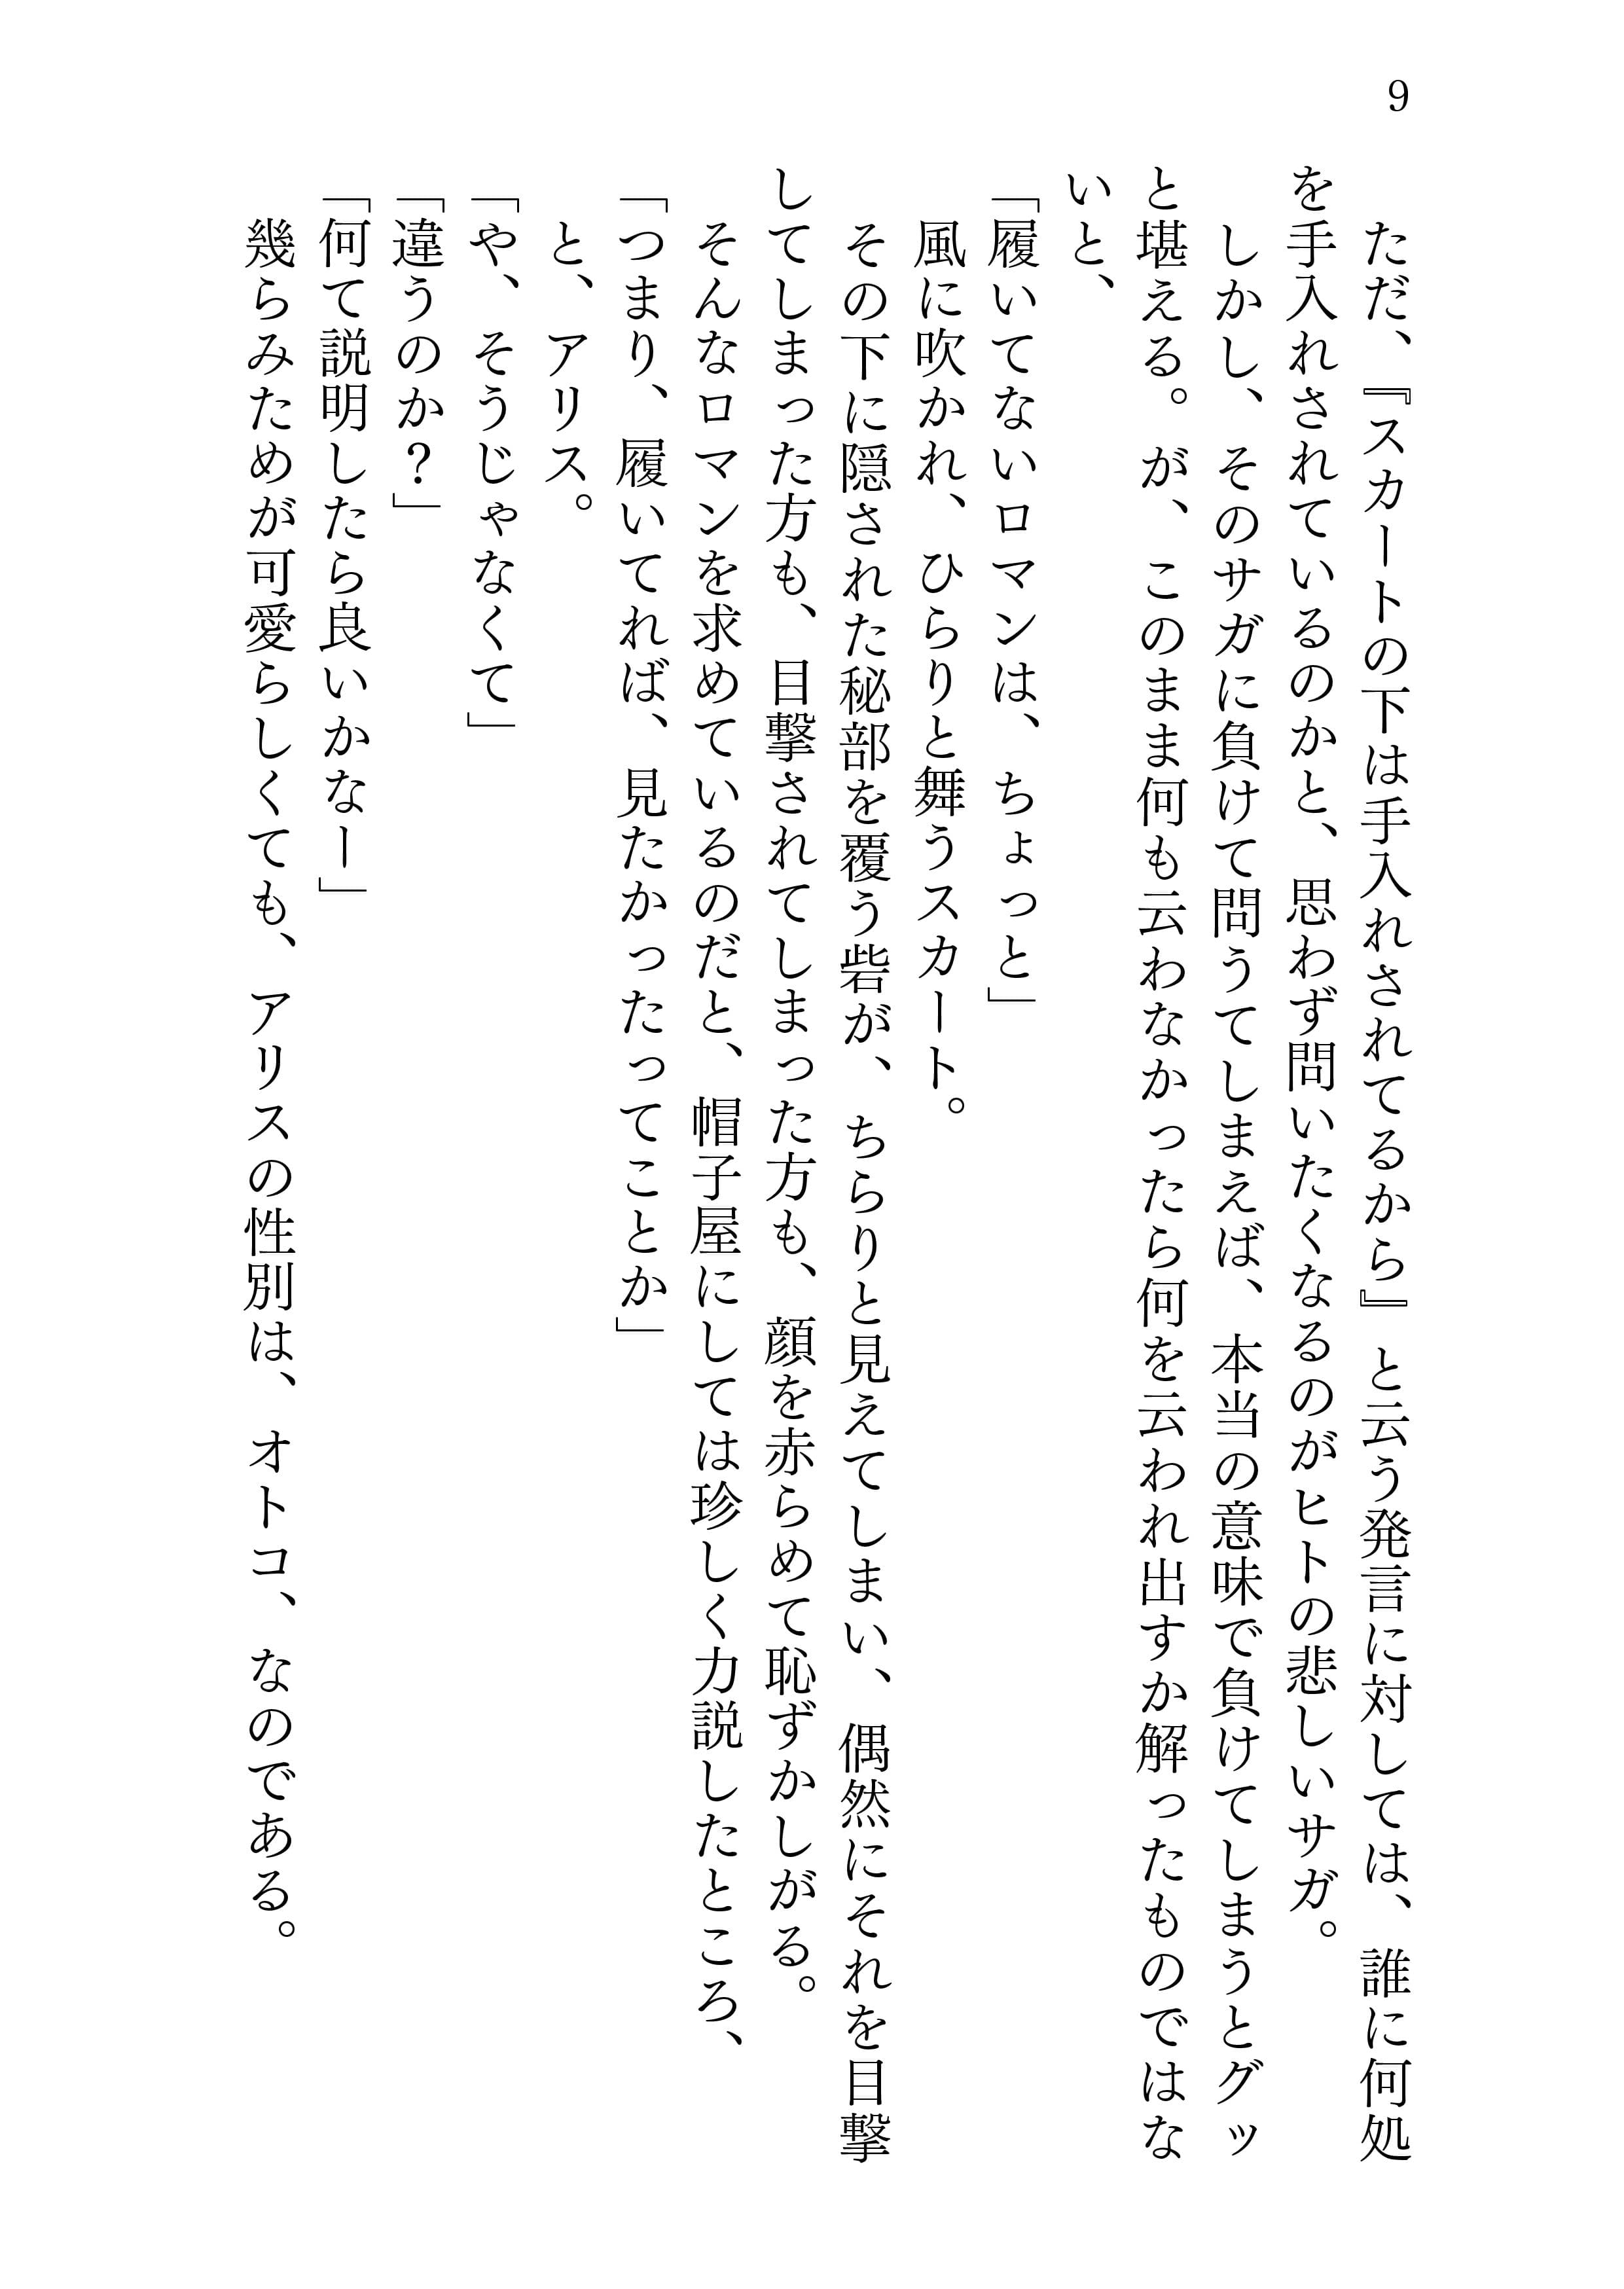 9
ただ、『スカートの下は手入れされてるから』と云う発言に対しては、誰に何処
を手入れされているのかと、思わず問いたくなるのがヒトの悲しいサガ。
しかし、そのサガに負けて問うてしまえば、本当の意味で負けてしまうとグッ
と堪える。が、このまま何も云わなかったら何を云われ出すか解ったものではな
いと、
「履いてないロマンは、ちょっと」
風に吹かれ、ひらりと舞うスカート。
その下に隠された秘部を覆う砦が、ちらりと見えてしまい、偶然にそれを目撃
してしまった方も、目撃されてしまった方も、顔を赤らめて恥ずかしがる。
そんなロマンを求めているのだと、帽子屋にしては珍しく力説したところ、
「つまり、履いてれば、見たかったってことか」
と、アリス。
「や、そうじゃなくて」
「違うのか？」
「何て説明したら良いかなー」
幾らみためが可愛らしくても、アリスの性別は、オトコ、なのである。